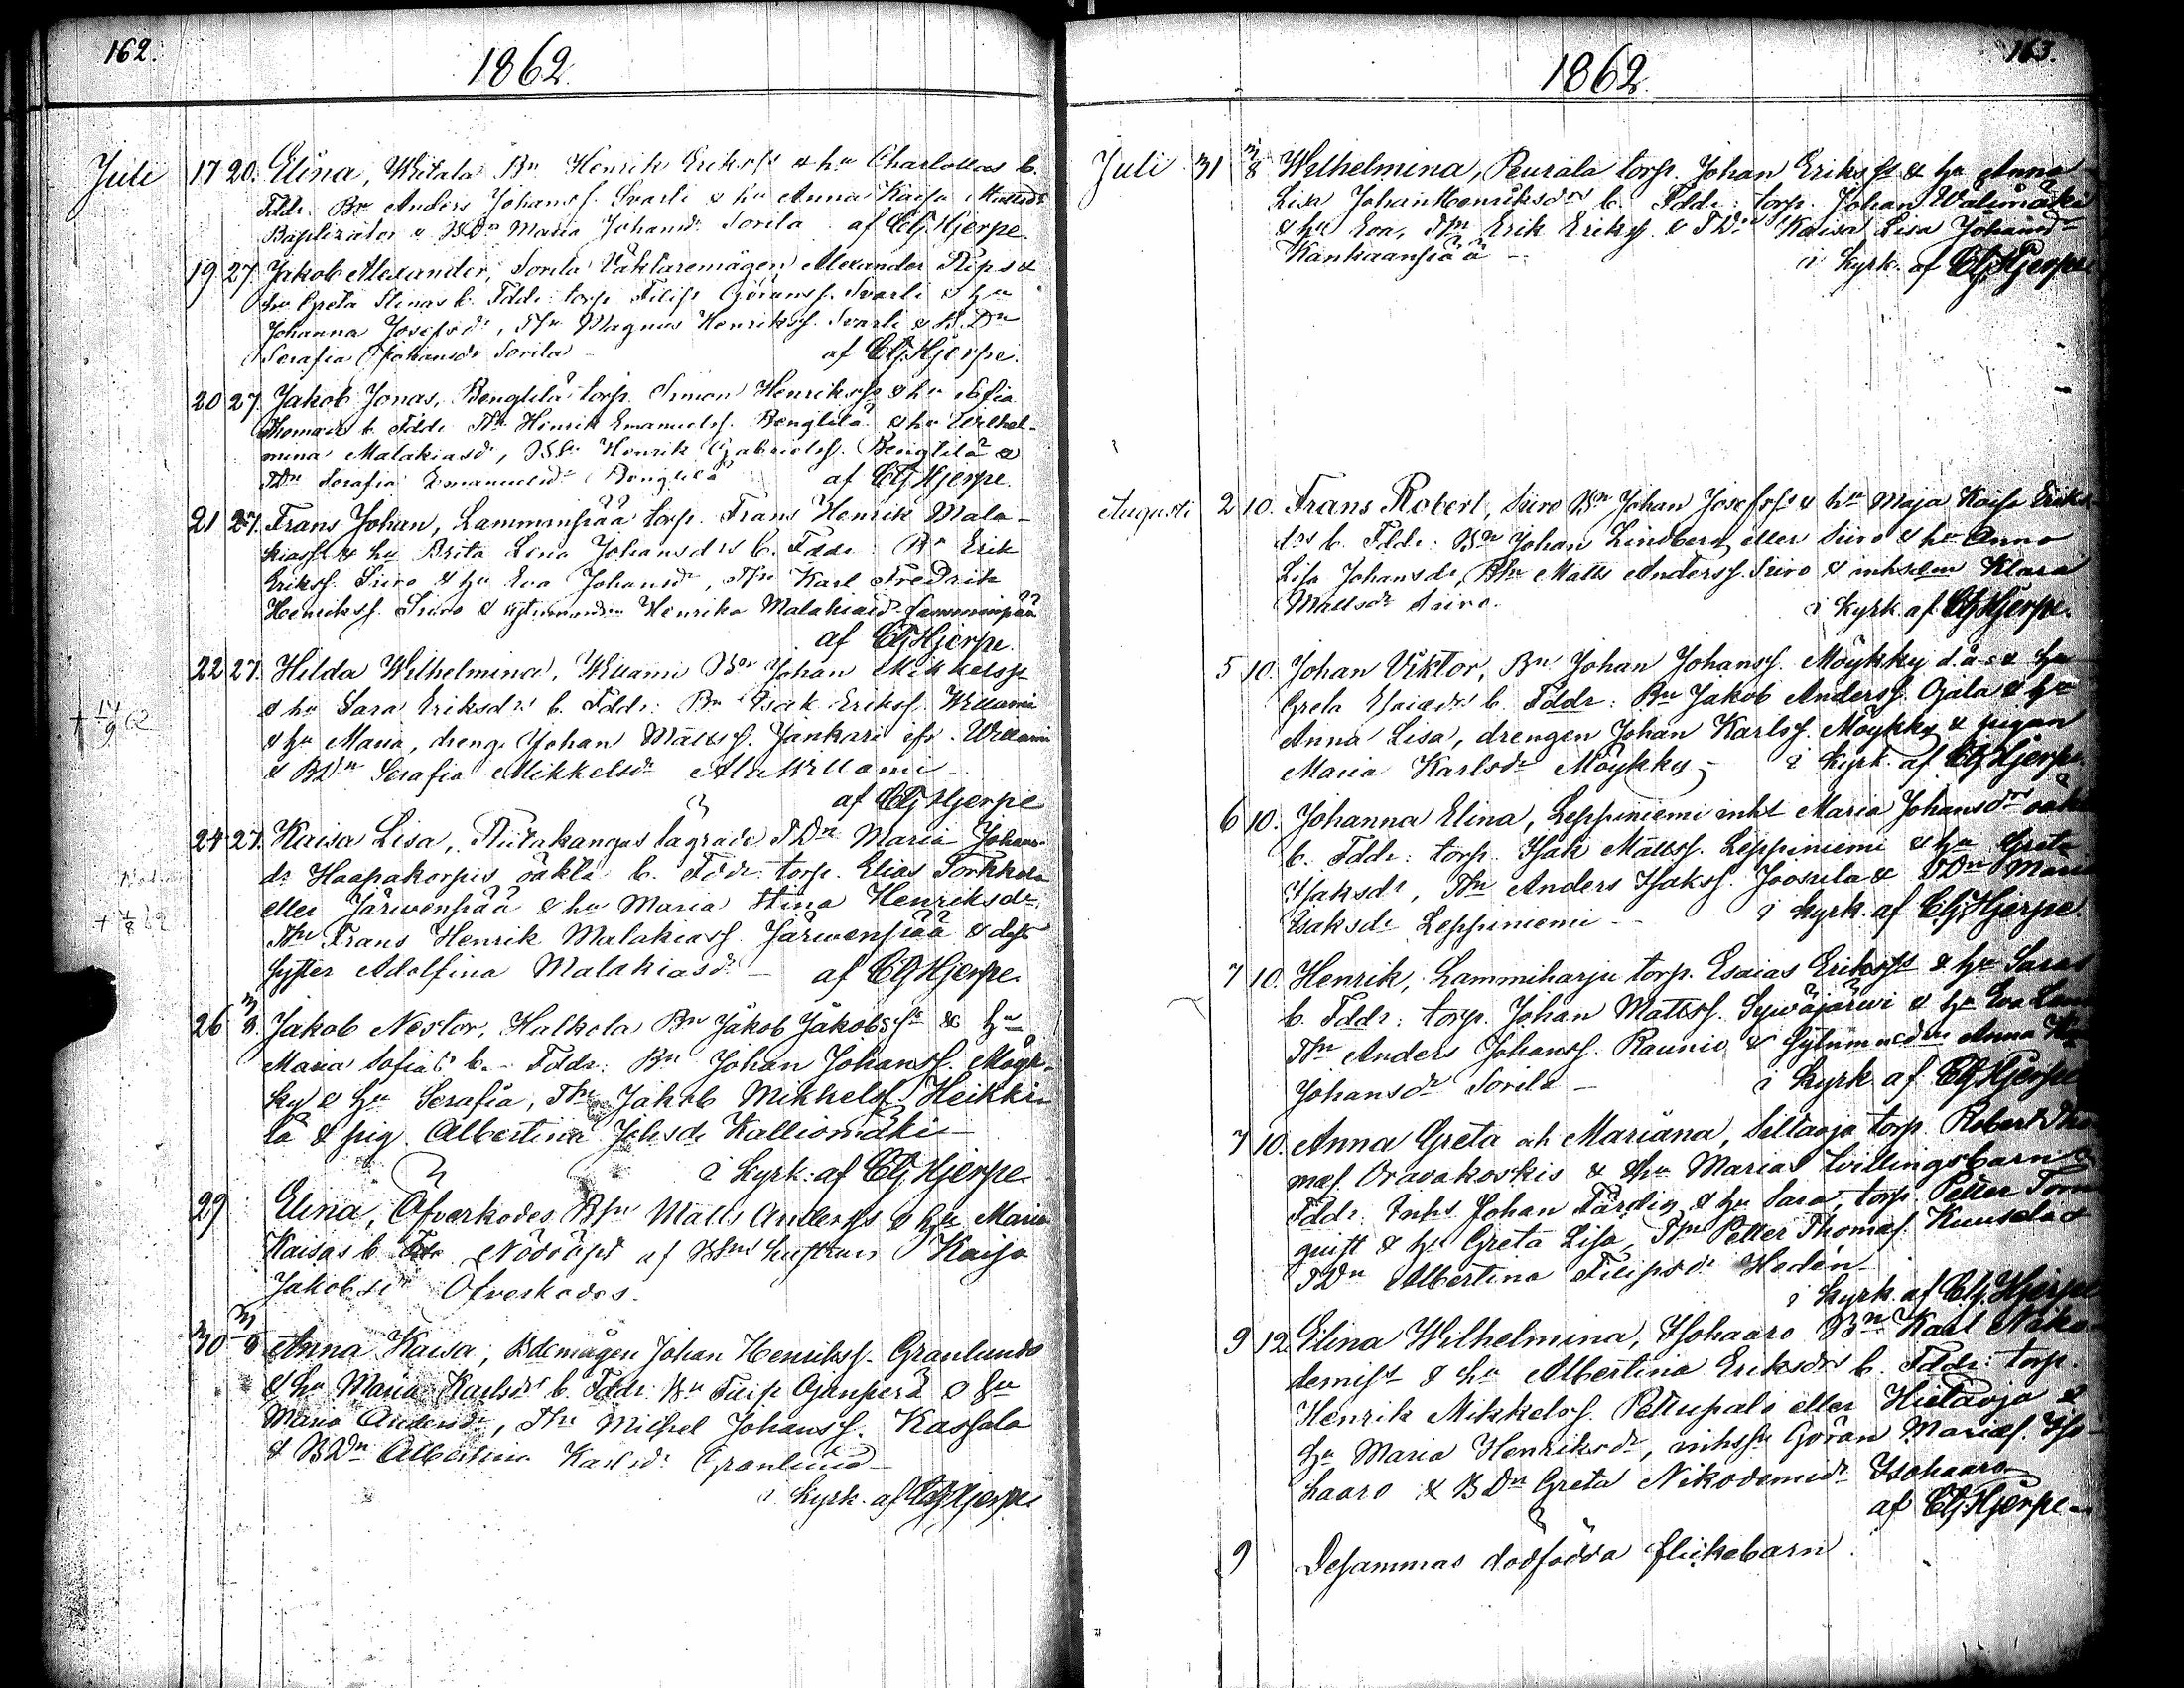 162.
1862.
Juli 17 20. Elina, Witala Bn Henrik Erikss & hu Charlottas b.
Fddr. Bn Anders Johanss. Svarti & hu Anna Kaisa Mattsdr
Baptizator & BDn Maria Johansdr Sorila af CG Hjerpe.
19 27. Jakob Alexander, Sorila Väktaremågen Alexander Rips &
hu Greta Stinas b. Fddr: torp. Filip Göranss. Svarli & hu
Johanna Josefsdr, Thn Magnus Henrikss. Svarli & B.Dn
Serafia Johansdr Sorila af CG Hjerpe.
20 27. Jakob Jonas, Bengtilä torp. Simon Henrikss & hu Sofia
Thomasdr b. Fddr Thn Henrik Emanuelss. Bengtilä & hu Wilhel-
mina Malakiasdr, BSn Henrik Gabrielss. Bengtilä &
TDn Serafia Emanuelsdr Bengtilä af CG Hjerpe.
21 27. Frans Johan, Lamminpää torp. Frans Henrik Mala-
kiass & hu Brita Lena Johansdrs b. Fddr: Bn Erik
Erikss. Siiro & hu Eva Johansdr, Thn Karl Fredrik
Henrikss. Siiro & Henrika Malakiasdr Lamminpää
af CG Hjerpe.
22 27. Hilda Wilhelmina, Willami Bn Johan Mikkelss
& hu Sara Eriksdrs b. Fddr: Bn Isak Erikss. Willami
& hu Maria, dreng. Johan Mattss. Jankari ifr. Willami
& BDn Serafia Mikkelsdr Ala Willami
+ 14/9 62
af CG Hjerpe
24 27. Kaisa Lisa, Riitakangas lagrade TDn Maria Johans-
dr Haapakorpis oäkta b. Fddr torp. Elias Torkkola
eller Järwenpää & hu Maria Stina Henriksdr.
Thn Frans Henrik Malakiass. Järwenpää & dess
syster Adolfina Malakiasdr af CG Hjerpe.
26 3/8. Jakob Nestor, Halkola Bn Jakob Jakobss & hu
Maria Sofias b. Fddr: Bn Johan Johanss. Möyk-
ky & hu Serafia, Thn Jakob Mikkelss. Heikki-
lä & pig. Albertina Johsdr Kalliomäki
i Kyrk: af CG Hjerpe
29 Elina, Öfverkodes Bhn Matts Anderss & hu Maria
Kaisas b. Nöddöpt af Bhns hustrun Kaisa
Jakobsdr Öfverkodes.
30 3/8 Anna Kaisa, Bdemågen Johan Henrikss. Granlunds
& hu Maria Karlsdrs b. Fddr: Bn Filip Ojanperä & hu
Maria Andersdr, Thn Michel Johanss. Kassala
& BDn Albertina Karlsdr Granlund
i Kyrk. af CG Hjerpe
163.
1862.
Juli 31 3/8 Wilhelmina, Peurala torp. Johan Erikss & hu Anna
Lisa Johan Henriksdrs b. Fddr: torp. Johan Välimäki
& hu Eva, Thn Erik Erikss. & TDn Kaisa Lisa Johansdr
Kankaanpää
i Kyrk. af CG Hjerpe
Augusti 2 10. Frans Robert, Siiro Bn Johan Josefss & hu Maja Kaisa Eriks-
drs b. Fddr: Bn Johan Lindberg eller Siiro & hu Anna
Lisa Johansdr, Bhn Matts Anderss. Siiro & Klara
Mattsdr Siiro.
i Kyrk. af CG Hjerpe.
5 10. Johan Viktor, Bn Johan Johanss. Möykky d.ä:s & hu
Greta Esaiædrs b. Fddr: Bn Jakob Anderss. Ojala & hu
Anna Lisa, drengen Johan Karlss. Möykky & pigan
Maria Karlsdr Möykky i Kyrk. af CG Hjerpe
6 10. Johanna Elina, Leppiniemi inhs Maria Johansdrs oäkta
b. Fddr: torp. Isak Mattss. Leppiniemi & hu Greta
Isaksdr, Thn Anders Isakss. Joosela & TDn Maria
Isaksdr Leppiniemi
i Kyrk. af CG Hjerpe.
7 10. Henrik, Lammiharju torp. Esaias Erikss & hu Saras
b. Fddr: torp. Johan Mattss. Sywäjärwi & hu Eva
Thn Anders Johanss. Raunio & Anna
Johansdr Sorila
i Kyrk. af CG Hjerpe
7 10. Anna Greta och Mariana, Siltaoja torp. Robert Tho-
mæs. Oravakoskis & hu Marias tvillingsbarn
Fddr: Inhs Johan Färdig & hu Sara, torp. Petter Torn-
quist & hu Greta Lisa, Thn Petter Thomæs. Kuusela &
TDn Albertina Filipsdr Hedén
i Kyrk. af CG Hjerpe
9 12. Elina Wilhelmina, Isohaaro Bn Karl Niko-
demiss & hu Albertina Eriksdrs b. Fddr: torp.
Henrik Mikkelss. Pettupalo eller Hietaoja &
hu Maria Henriksdr, Göran Mariæs. Iso-
haaro & BDn Greta Nikodemidr Isohaaro
af CG Hjerpe
9 Desammas dödfödda flickebarn.